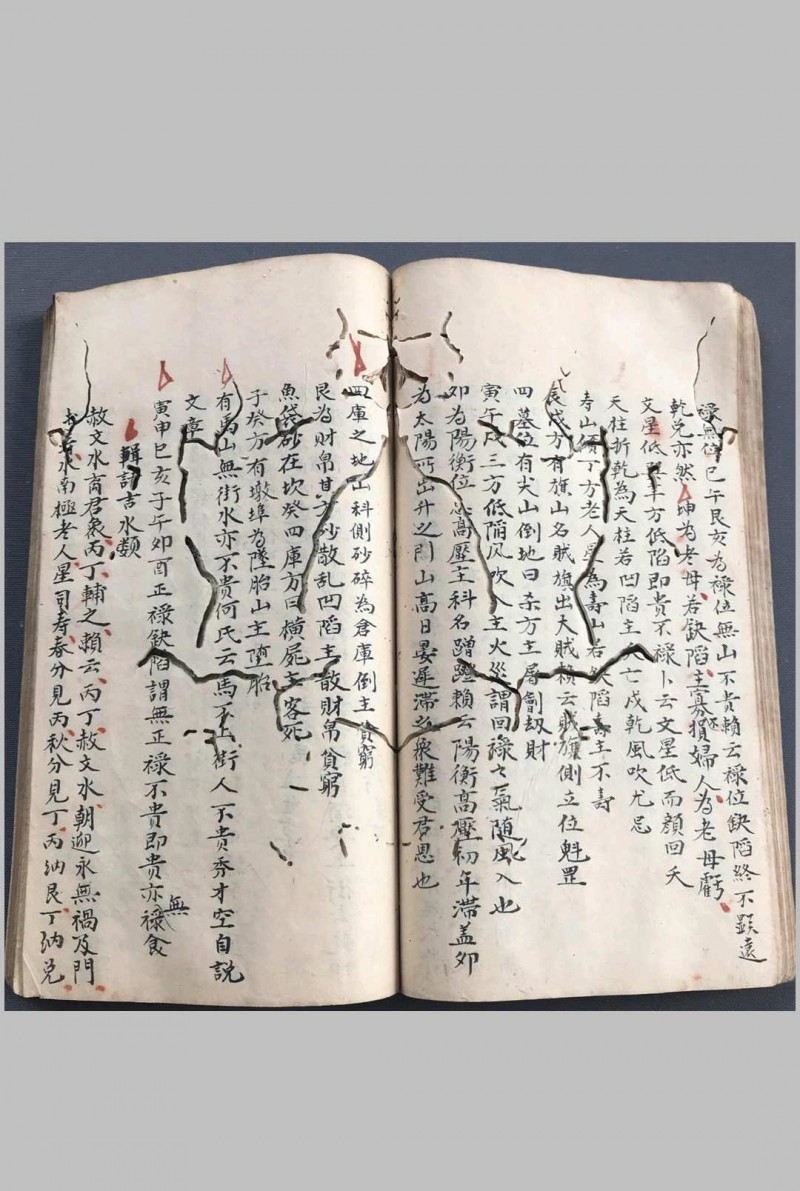 祿無位巳午艮亥為祿位無山不貴賴云祿位缺陷終不顕遠
乾兑亦然坤為老母若缺陷主寡賀婦人為老母虧
文星低 方低陷即貴不祿卜云文星低而顔回夭
天柱折乾為天柱若凹陷主 亡戍乾風吹尤忌
寿山 丁方老人 為壽山若 缺陷壽主不壽
辰戌方有旗山名賊旗出大賊賴云賊旗側立位魁罡
四墓位有尖山倒地曰杀方主屠劊刼財
寅午戍三方低陷风吹入主火災謂回祿之氣隨風入也
卯為陽衡位忌高壓主科名蹭蹬賴云陽衡高壓初年滯盖夘
為太陽所出升之門山高日晏遲滯之象難受君恩也
四庫之地山科側砂碎為倉庫倒主貧窮
艮為財帛其方砂散乱凹陷主散財帛貧窮
魚袋砂在坎癸四庫方曰横屍主客死
子癸方有墩埠為墜胎山主堕胎
有馬山無街水亦不貴何氏云馬不上街人不貴秀才空自説
文章
寅申巳亥子午卯酉正祿缺陷謂無正祿不貴即貴亦無祿食
輯諸吉水類
赦文水 君 丙丁輔之賴云丙丁赦文水朝迎永無禍及門
水南極老人星司寿春分見丙秋分見丁丙納艮丁納兑